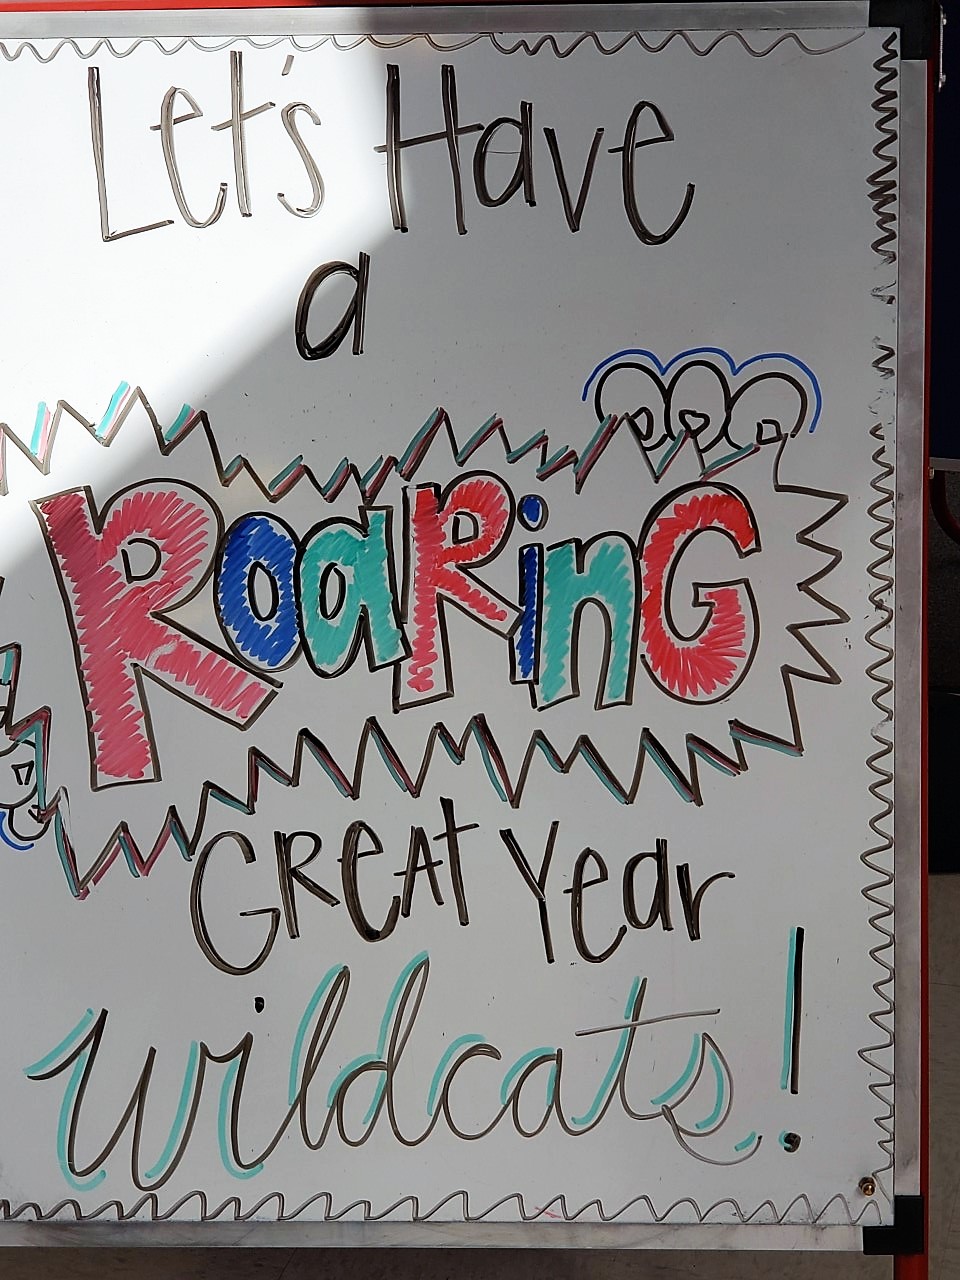 Let's Have
a
RoaRinG
GReAt Year
wildcats!